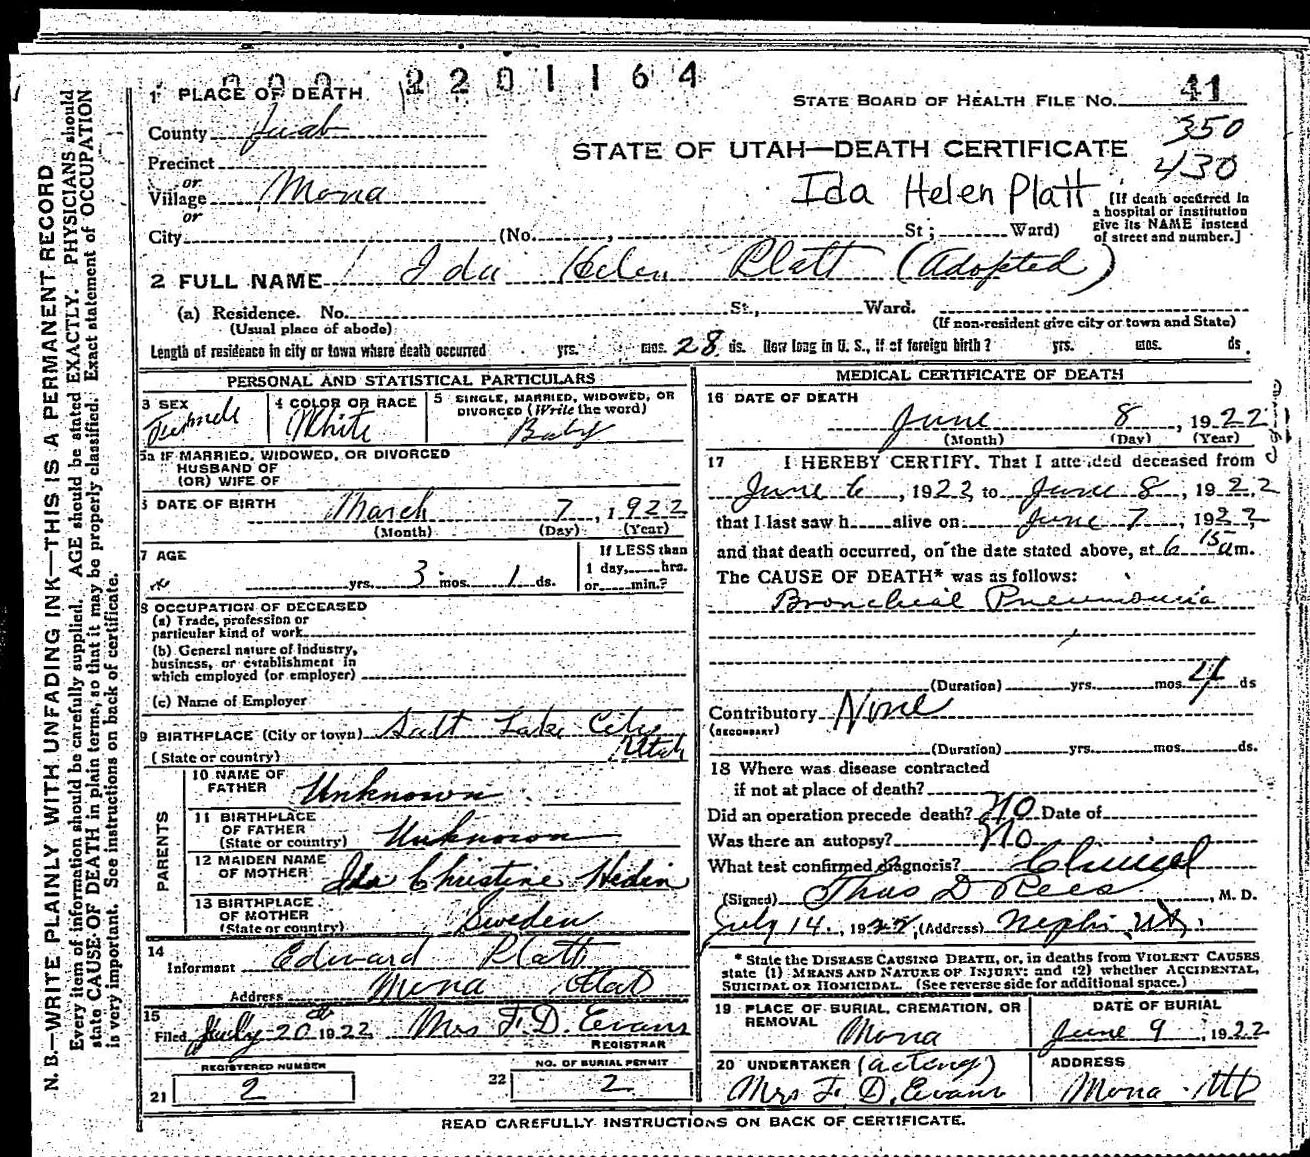 000 2201164
1 PLACE OF DEATH
STATE BOARD OF HEALTH FILE NO. 41
County Juab
350
STATE OF UTAH—DEATH CERTIFICATE
430
Precinct
or
Village Mona
Ida Helen Platt
[If death occurred in a hospital or institution give its NAME instead of street and number.]
or
City (No. , St; Ward)
2 FULL NAME Ida Helen Platt (Adopted)
(a) Residence. No. St., Ward.
(Usual place of abode) (If non-resident give city or town and State)
Length of residence in city or town where death occurred yrs. mos. 28 ds. How long in U. S., if of foreign birth? yrs. mos. ds.
PERSONAL AND STATISTICAL PARTICULARS
3 SEX Female
4 COLOR OR RACE White
5 SINGLE, MARRIED, WIDOWED, OR DIVORCED (Write the word) Baby
5a IF MARRIED, WIDOWED, OR DIVORCED
HUSBAND OF
(OR) WIFE OF
6 DATE OF BIRTH March 7, 1922
(Month) (Day) (Year)
7 AGE yrs. 3 mos. 1 ds.
If LESS than 1 day, hrs. or min.?
8 OCCUPATION OF DECEASED
(a) Trade, profession or
particular kind of work
(b) General nature of industry,
business, or establishment in
which employed (or employer)
(c) Name of Employer
9 BIRTHPLACE (City or town) Salt Lake City
(State or country) Utah
PARENTS
10 NAME OF FATHER Unknown
11 BIRTHPLACE OF FATHER (State or country) Unknown
12 MAIDEN NAME OF MOTHER Ida Christine Hedin
13 BIRTHPLACE OF MOTHER (State or country) Sweden
14 Informant Edward Platt
Address Mona Utah
15 Filed July 20th 1922 Mrs F. D. Evans
REGISTRAR
REGISTERED NUMBER
21 2
NO. OF BURIAL PERMIT
22 2
MEDICAL CERTIFICATE OF DEATH
16 DATE OF DEATH
June 8, 1922
(Month) (Day) (Year)
17 I HEREBY CERTIFY. That I attended deceased from
June 6, 1922 to June 8, 1922
that I last saw h alive on June 7, 1922
and that death occurred, on the date stated above, at 6 15 a m.
The CAUSE OF DEATH* was as follows:
Bronchial Pneumonia
(Duration) yrs. mos. 4 ds
Contributory None
(SECONDARY)
(Duration) yrs. mos. ds.
18 Where was disease contracted
if not at place of death?
Did an operation precede death? No Date of
Was there an autopsy? No
What test confirmed diagnosis? Clinical
(Signed) Thos D Rees, M. D.
July 14, 1922, (Address) Nephi, Ut.
* State the DISEASE CAUSING DEATH, or, in deaths from VIOLENT CAUSES
state (1) MEANS AND NATURE OF INJURY; and (2) whether ACCIDENTAL,
SUICIDAL OR HOMICIDAL. (See reverse side for additional space.)
19 PLACE OF BURIAL, CREMATION, OR REMOVAL Mona
DATE OF BURIAL June 9, 1922
20 UNDERTAKER (acting) Mrs F. D. Evans
ADDRESS Mona Ut
READ CAREFULLY INSTRUCTIONS ON BACK OF CERTIFICATE.
N. B.—WRITE PLAINLY WITH UNFADING INK—THIS IS A PERMANENT RECORD
Every item of information should be carefully supplied. AGE should be stated EXACTLY. PHYSICIANS should
state CAUSE OF DEATH in plain terms, so that it may be properly classified. Exact statement of OCCUPATION
is very important. See instructions on back of certificate.